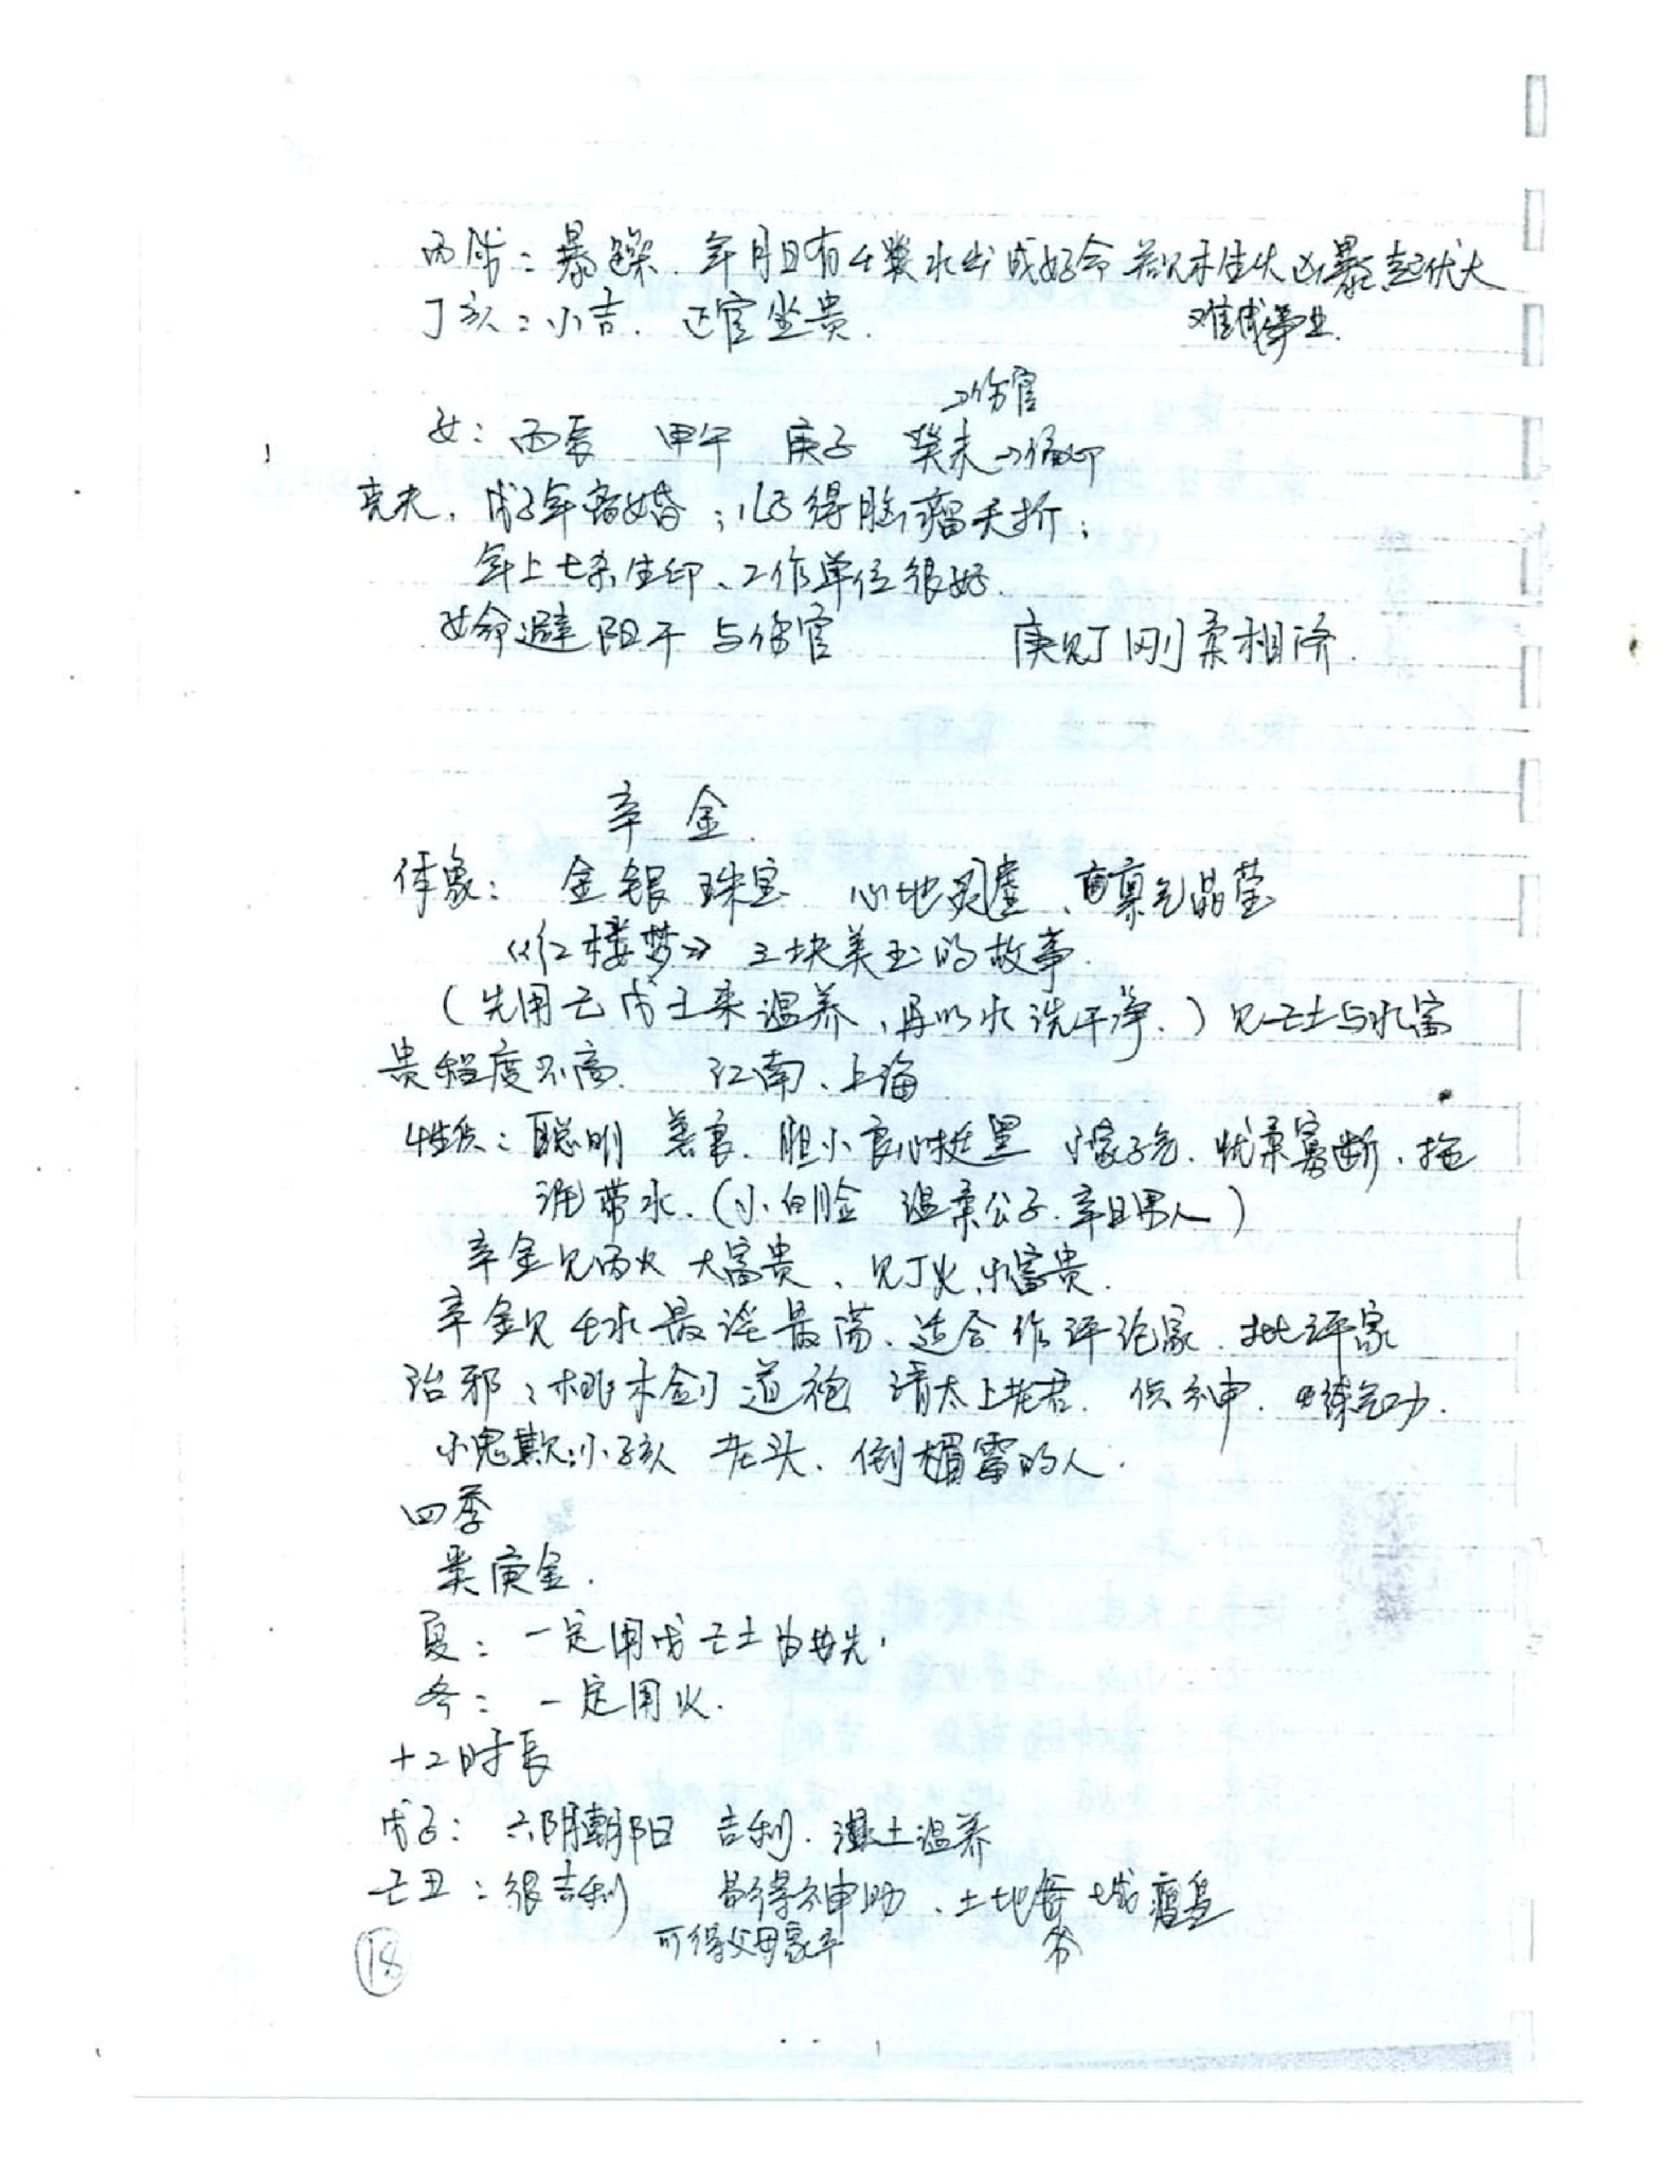 丙戌：暴躁．年月日有壬癸水 成好命 若见木生火凶暴起伏大
难成事业．
丁亥：小吉．正官坐贵．
→伤官
女：丙辰 甲午 庚子 癸未→偏印
克夫．戊子年离婚；儿子得脑瘤夭折；
年上七杀生印、工作单位很好．
女命避阳干与伤官 庚见丁刚柔相济．
辛金．
体象： 金银珠宝 心地灵 、 气晶莹
《红楼梦》三块美玉的故事．
（先用己戊土来温养，再以水洗干净．）见己土与水富
贵程度不高． 江南、上海
性质：聪明 善良．胆小良心挺黑 小家子气．优柔寡断．拖
泥带水．（小白脸 温柔公子．辛日男人）
辛金见丙火 大富贵、见丁火，小富贵．
辛金见壬水最淫最荡．适合作评论家．批评家
治邪：桃木剑 道袍 请太上老君．供神．练气功．
小鬼欺：小孩 老头．倒楣霉的人．
四季
类庚金．
夏：一定用戊己土为 先．
冬：一定用火．
十二时辰
戊子：六阴朝阳 吉利．湿土温养
己丑：很吉利 易得神助、土地爷 城隍
可得父母家 爷
18